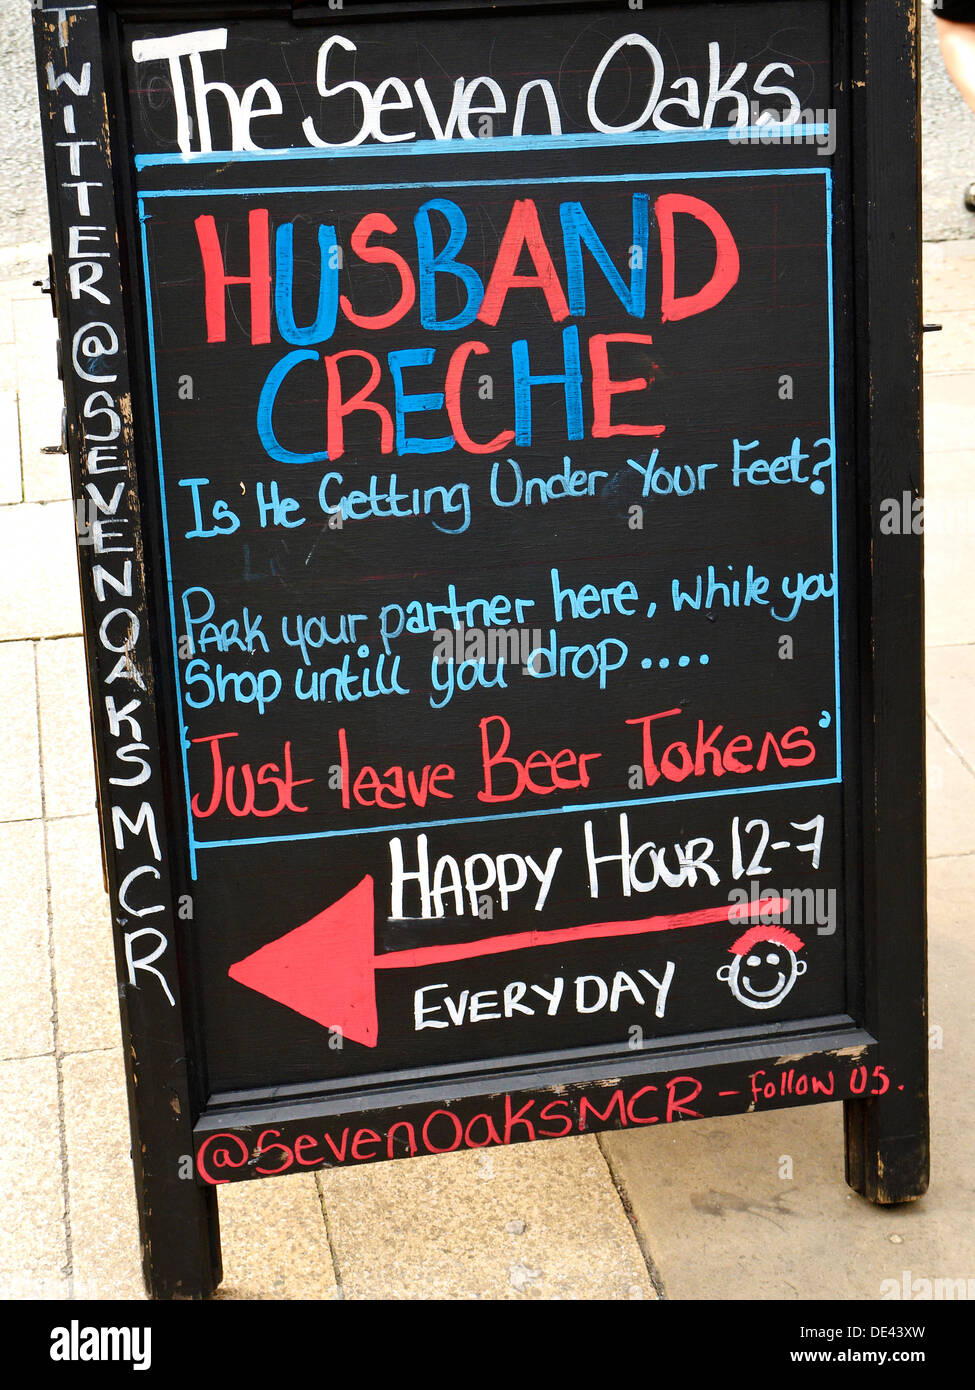 The Seven Oaks
HUSBAND
CRECHE
Is He Getting Under Your Feet?
Park your partner here, while you
Shop untill you drop....
'Just leave Beer Tokens'
HAPPY HOUR 12-7
EVERYDAY
@SevenOaksMCR - Follow us.
TWITTER@SEVENOAKSMCR
a
alamy
alamy stock photo
DE43XW
www.alamy.com